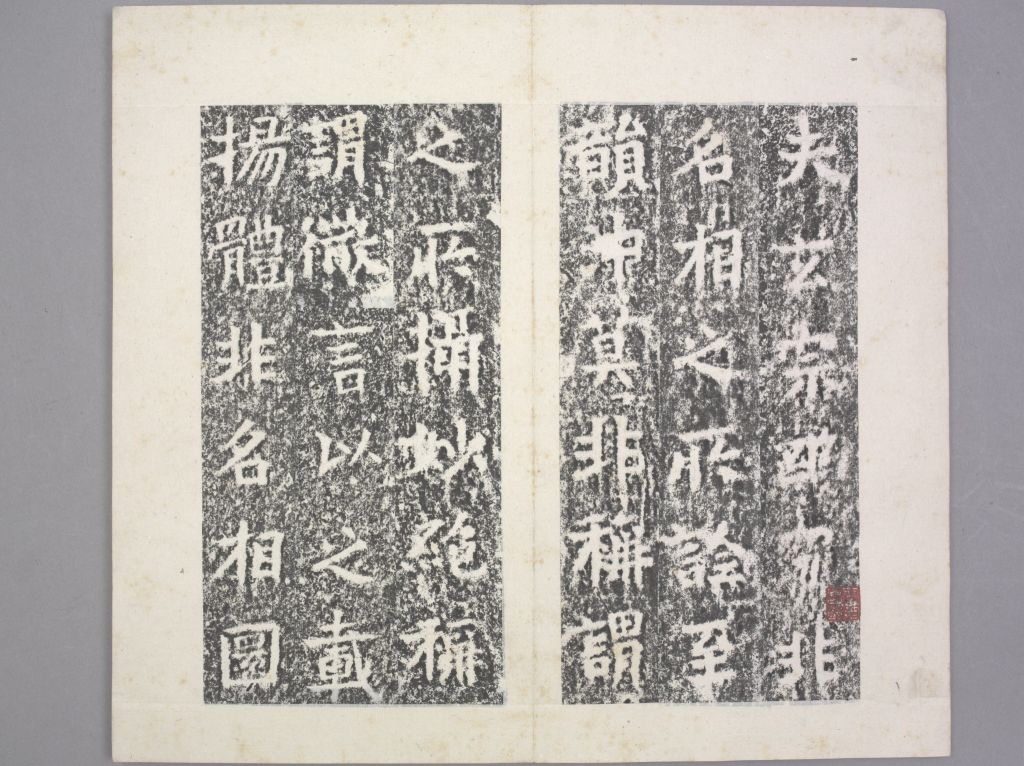 夫玄宗寂非
名相之所詮至
韻冲莫非稱謂
之所攝妙絕稱
謂微言以之載
揚體非名相圖